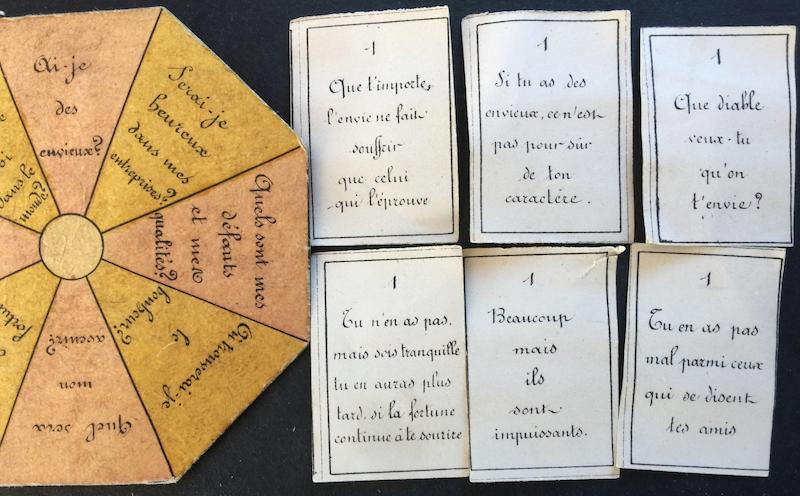 Ai-je
des
envieux?
Serai-je
heureux
dans mes
entreprises?
Quels sont mes
défauts
et mes
qualités?
Trouverai-je
le
bonheur?
Quel sera
mon
avenir?
dans le
monde?
1
Que t'importe,
l'envie ne fait
souffrir
que celui
qui l'éprouve
1
Si tu as des
envieux, ce n'est
pas pour sûr
de ton
caractère.
1
Que diable
veux-tu
qu'on
t'envie?
1
Tu n'en as pas,
mais sois tranquille
tu en auras plus
tard, si la fortune
continue à te sourire
1
Beaucoup
mais
ils
sont
impuissants.
1
Tu en as pas
mal parmi ceux
qui se disent
tes amis